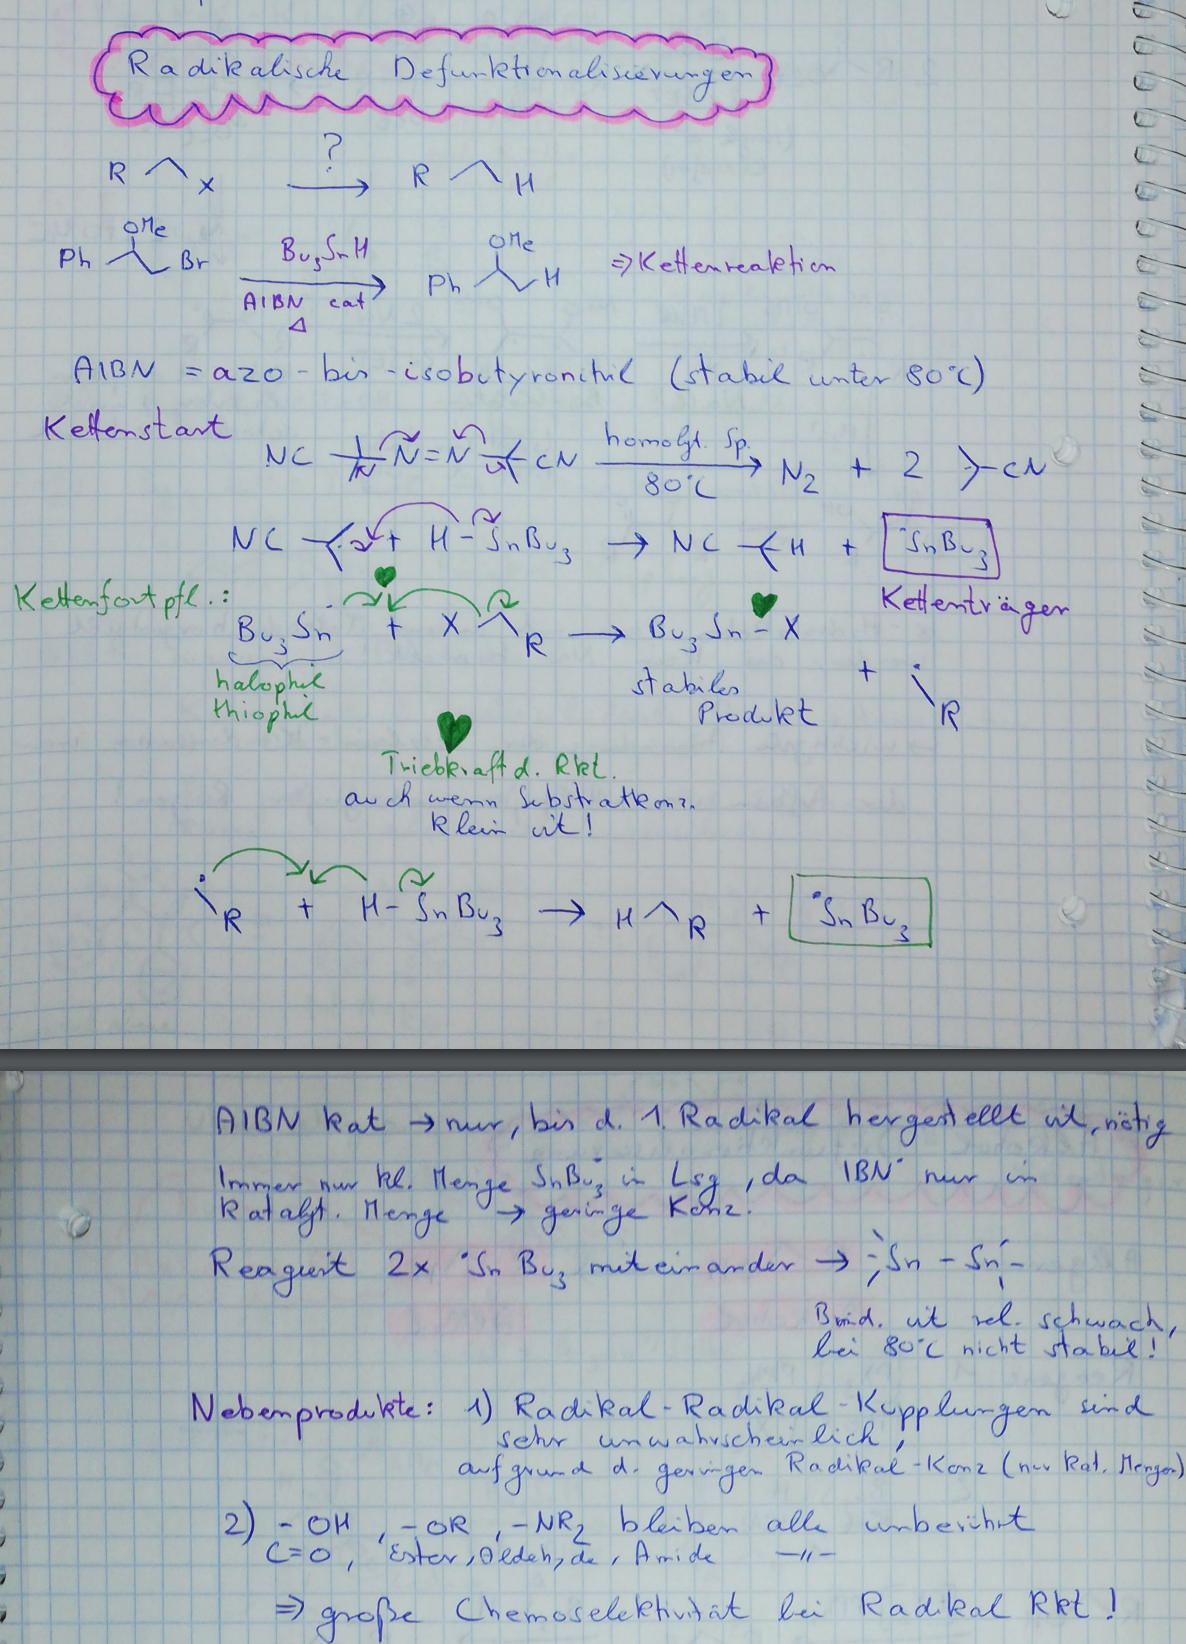 Radikalische Defunktionalisierungen
R X ? → R H
Ph OMe Br Bu₃SnH AIBN cat Δ → Ph OMe H ⇒ Kettenreaktion
AIBN = azo-bis-isobutyronitril (stabil unter 80°C)
Kettenstart
NC N=N CN homolyt. Sp. 80°C → N₂ + 2 CN
NC · + H-SnBu₃ → NC H + ·SnBu₃
Kettenträger
Kettenfortpfl.:
Bu₃Sn· + X R → Bu₃Sn-X + · R
halophil
thiophil
stabiles
Produkt
Triebkraft d. Rkt.
auch wenn Substratkonz.
klein ist!
· R + H-SnBu₃ → H R + ·SnBu₃
AIBN kat → nur, bis d. 1. Radikal hergestellt ist, nötig
Immer nur kl. Menge SnBu₃· in Lsg, da IBN· nur in
katalyt. Menge → geringe Konz.
Reagiert 2x ·SnBu₃ miteinander → Sn-Sn
Bind. ist rel. schwach,
bei 80°C nicht stabil!
Nebenprodukte: 1) Radikal-Radikal-Kupplungen sind
sehr unwahrscheinlich,
aufgrund d. geringen Radikal-Konz (nur kat. Mengen)
2) -OH, -OR, -NR₂ bleiben alle unberührt
C=O, Ester, Aldehyde, Amide -"-
⇒ große Chemoselektivität bei Radikal Rkt!